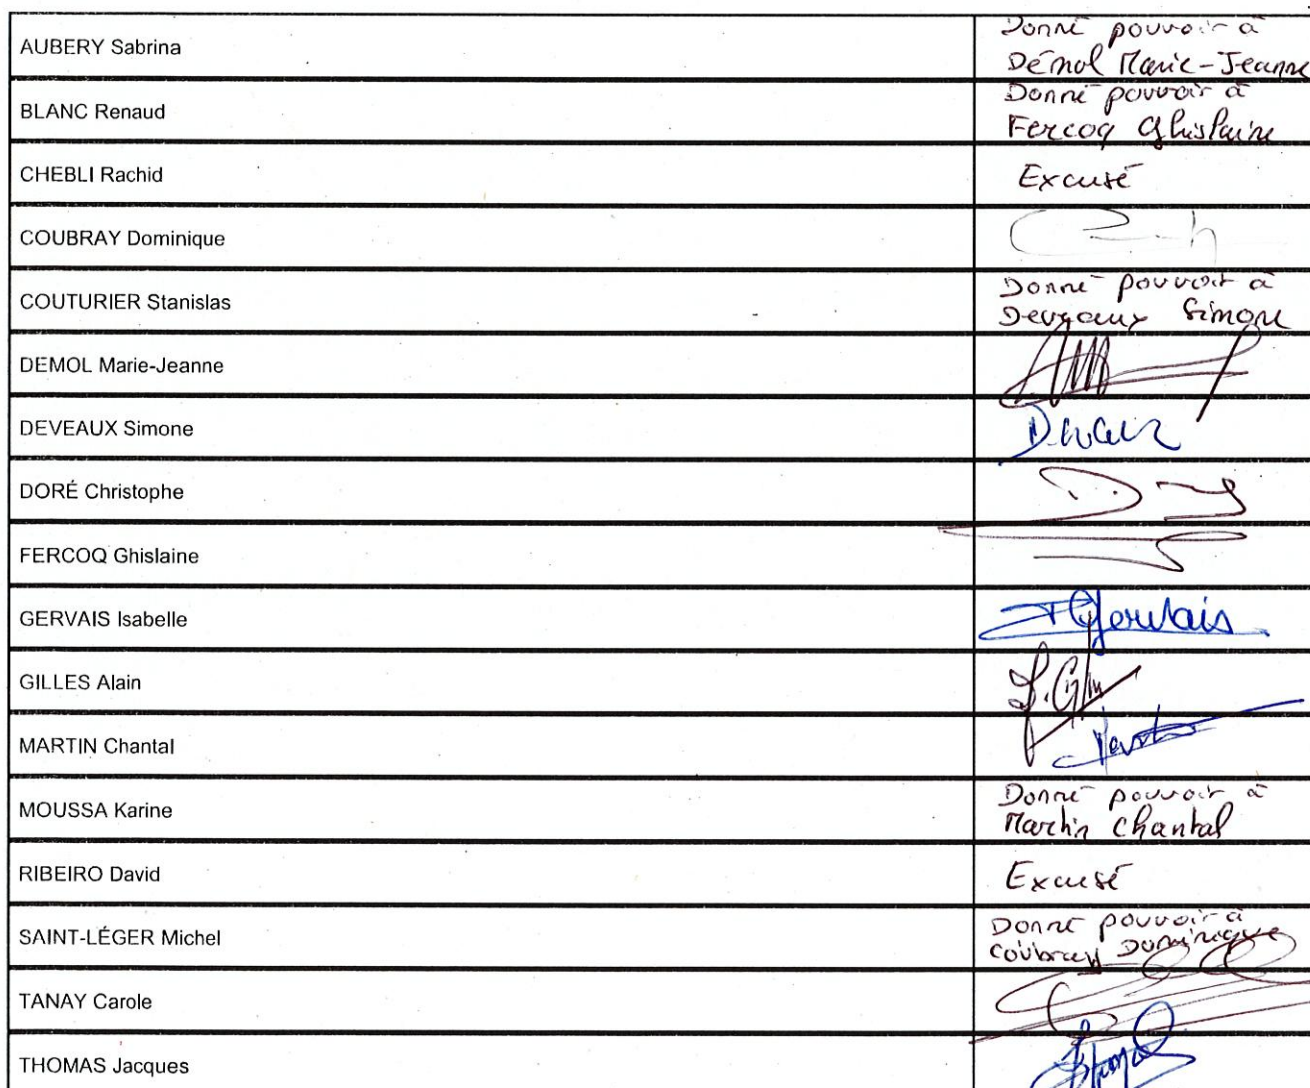 AUBERY Sabrina
Donné pouvoir à
Démol Marie-Jeanne
BLANC Renaud
Donné pouvoir à
Fercoq Ghislaine
CHEBLI Rachid
Excusé
COUBRAY Dominique
COUTURIER Stanislas
Donné pouvoir à
Deveaux Simone
DEMOL Marie-Jeanne
DEVEAUX Simone
DORÉ Christophe
FERCOQ Ghislaine
GERVAIS Isabelle
Gervais
GILLES Alain
MARTIN Chantal
MOUSSA Karine
Donné pouvoir à
Martin Chantal
RIBEIRO David
Excusé
SAINT-LÉGER Michel
Donné pouvoir à
Coubray Dominique
TANAY Carole
THOMAS Jacques